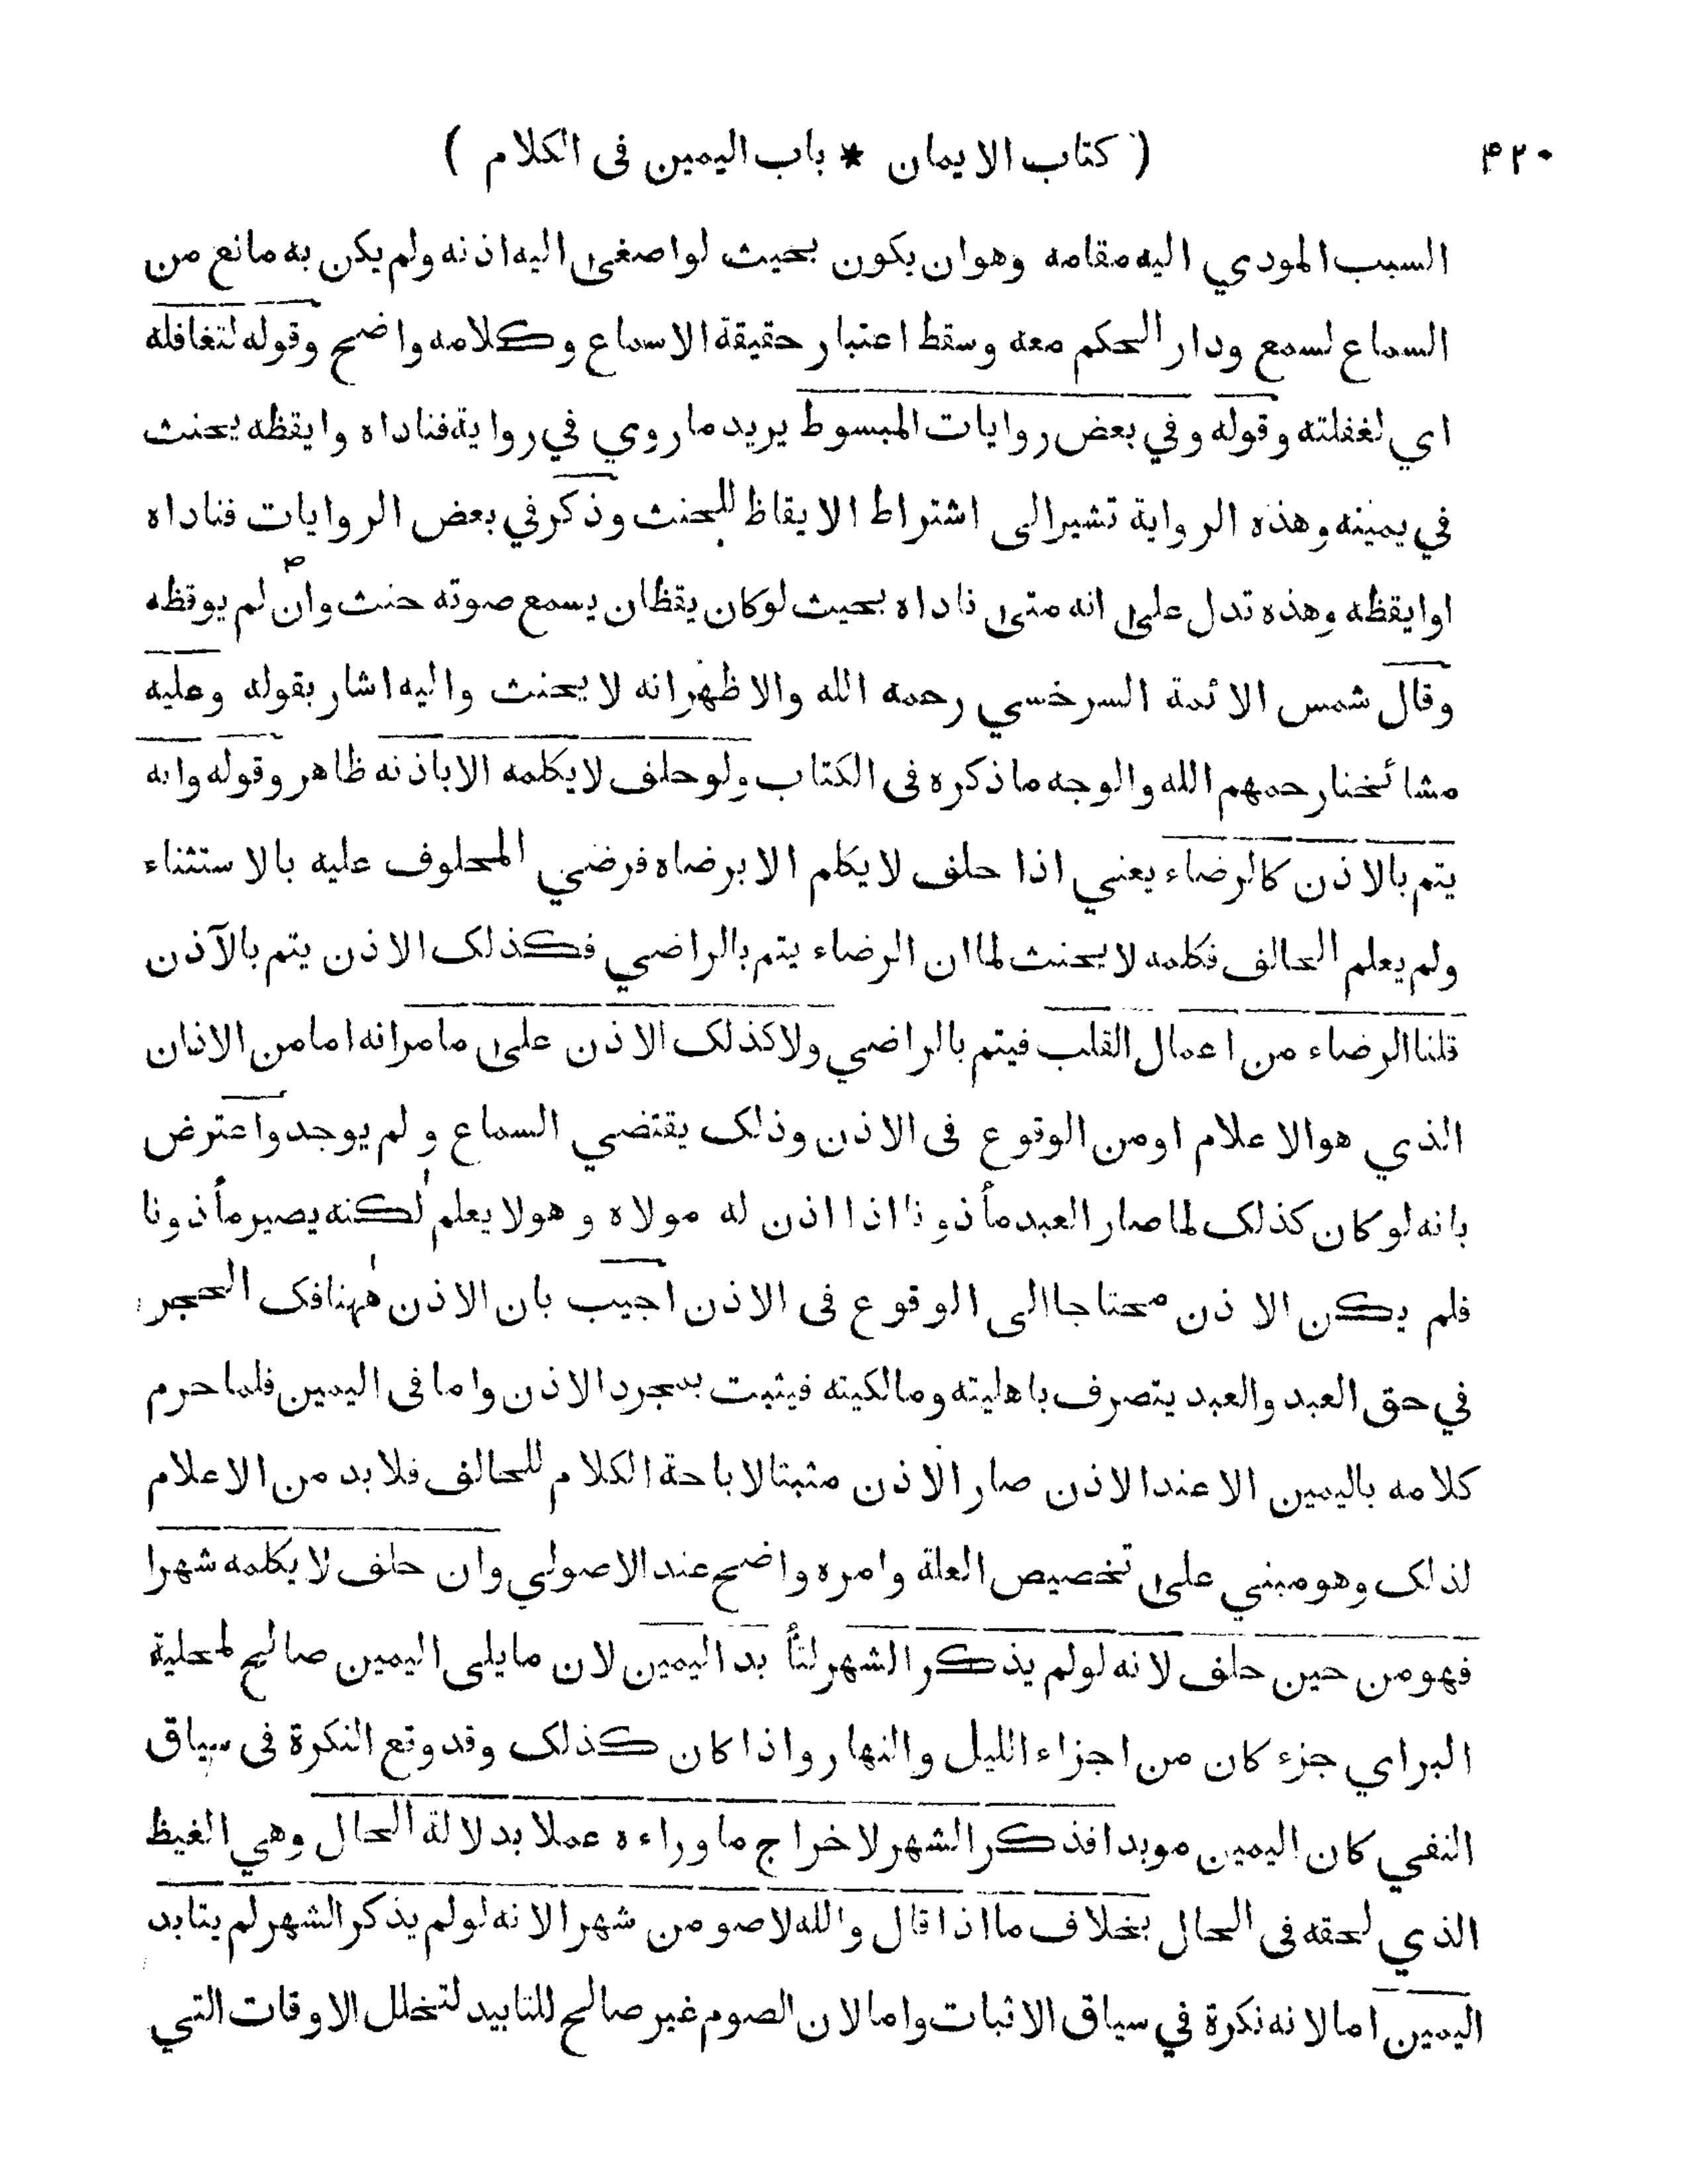 ۴۲۰ ( كتاب الايمان * باب اليمين فى الكلام )
السبب المودي اليه مقامه وهو ان يكون بحيث لو اصغى اليه اذنه ولم يكن به مانع من
السماع لسمع ودار الحكم معه وسقط اعتبار حقيقة الاسماع وكلامه واضح وقوله لتغافله
اي لغفلته وقوله وفي بعض روايات المبسوط يريد ما روي في رواية فناداه وايقظه يحنث
في يمينه وهذه الرواية تشير الى اشتراط الايقاظ للحنث وذكر في بعض الروايات فناداه
او ايقظه وهذه تدل على انه متى ناداه بحيث لو كان يقظان يسمع صوته حنث وان لم يوقظه
وقال شمس الائمة السرخسي رحمه الله والاظهر انه لا يحنث واليه اشار بقوله وعليه
مشائخنا رحمهم الله والوجه ما ذكره فى الكتاب ولو حلف لا يكلمه الا باذنه ظاهر وقوله وانه
يتم بالاذن كالرضاء يعني اذا حلف لا يكلم الا برضاه فرضي المحلوف عليه بالاستثناء
ولم يعلم الحالف فكلمه لا يحنث لما ان الرضاء يتم بالراضي فكذلك الاذن يتم بالآذن
قلنا الرضاء من اعمال القلب فيتم بالراضي ولا كذلك الاذن على ما مر انه اما من الاذان
الذي هو الاعلام او من الوقوع فى الاذن وذلك يقتضي السماع ولم يوجد واعترض
بانه لو كان كذلك لما صار العبد مأذونا اذا اذن له مولاه وهو لا يعلم لكنه يصير مأذونا
فلم يكن الاذن محتاجا الى الوقوع فى الاذن اجيب بان الاذن ههنا فك الحجر
في حق العبد والعبد يتصرف باهليته ومالكيته فيثبت بمجرد الاذن واما فى اليمين فلما حرم
كلامه باليمين الا عند الاذن صار الاذن مثبتا لاباحة الكلام للحالف فلا بد من الاعلام
لذلك وهو مبني على تخصيص العلة وامره واضح عند الاصولي وان حلف لا يكلمه شهرا
فهو من حين حلف لانه لو لم يذكر الشهر لتأبد اليمين لان ما يلى اليمين صالح لمحلية
البر اي جزء كان من اجزاء الليل والنهار واذا كان كذلك وقد وقع النكرة فى سياق
النفي كان اليمين موبدا فذكر الشهر لاخراج ما وراءه عملا بدلالة الحال وهي الغيظ
الذي لحقه فى الحال بخلاف ما اذا قال والله لاصومن شهرا لانه لو لم يذكر الشهر لم يتابد
اليمين اما لانه نكرة في سياق الاثبات واما لان الصوم غير صالح للتابيد لتخلل الاوقات التي